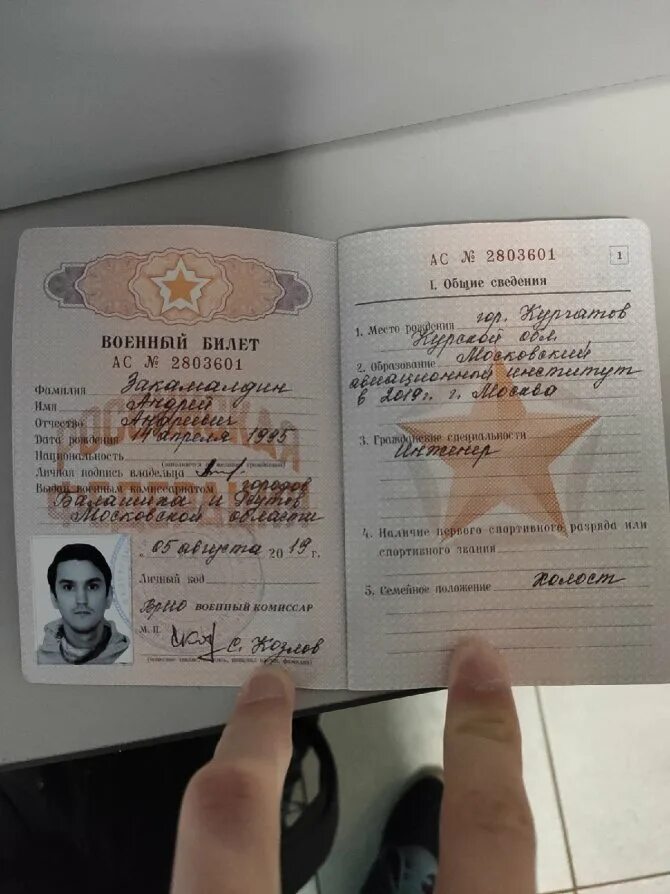 ВОЕННЫЙ БИЛЕТ
АС № 2803601
Фамилия Закамалдин
Имя Андрей
Отчество Андреевич
Дата рождения 14 апреля 1995
Национальность
(заполняется по желанию гражданина)
Личная подпись владельца
Выдан военным комиссариатом городов
Балашиха и Реутов
Московской области
« 05 августа 2019 г.
Личный код
Врио ВОЕННЫЙ КОМИССАР
М. П. С. Козлов
РОССИЙСКАЯ
ФЕДЕРАЦИЯ
АС № 2803601
1
I. Общие сведения
1. Место рождения гор. Курчатов
Курской обл.
2. Образование Московский
авиационный институт
в 2019г. г. Москва
3. Гражданские специальности
Инженер
4. Наличие первого спортивного разряда или
спортивного звания
5. Семейное положение Холост